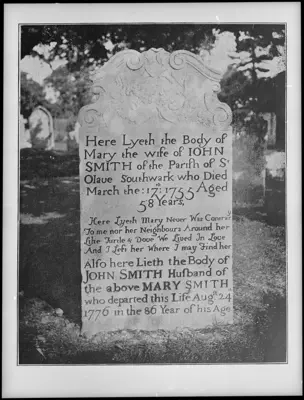 Here Lyeth the Body of
Mary the wife of IOHN
SMITH of the Parish of St
Olave Southwark who Died
March the 17th 1755 Aged
58 Years
Here Lyeth Mary Never was Contrary
To me nor her Neighbours Around her
Like Turtle & Dove We Lived In Love
And I Left her Where I may Find her
Also here Lieth the Body of
JOHN SMITH Husband of
the above MARY SMITH
who departed this Life Augst 24
1776 in the 86 Year of his Age